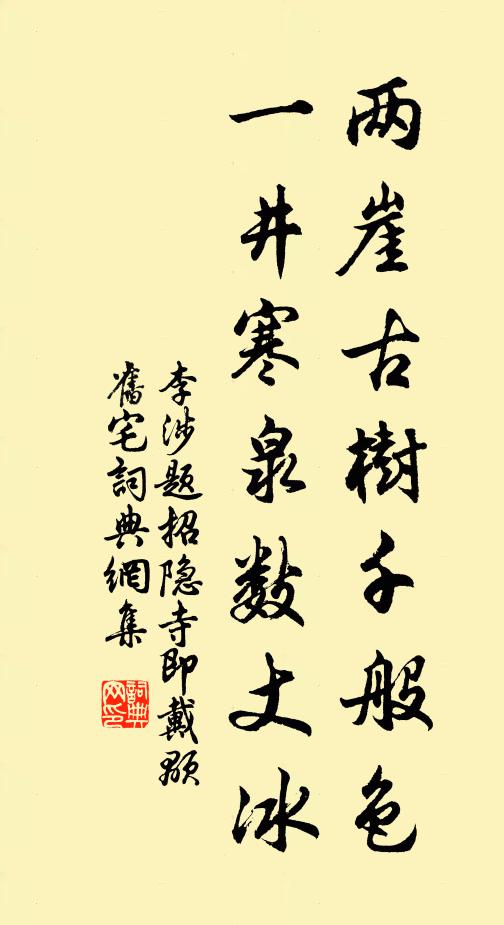 两崖古樹千般色
一井寒泉数丈冰
李涉题招隐寺即戴顒
舊宅詞典網集
詞典
网印